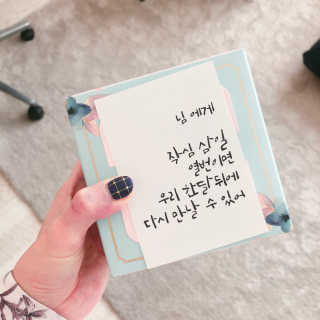 님에게
작심삼일
열번이면
우리 한달 뒤에
다시 만날 수 있어